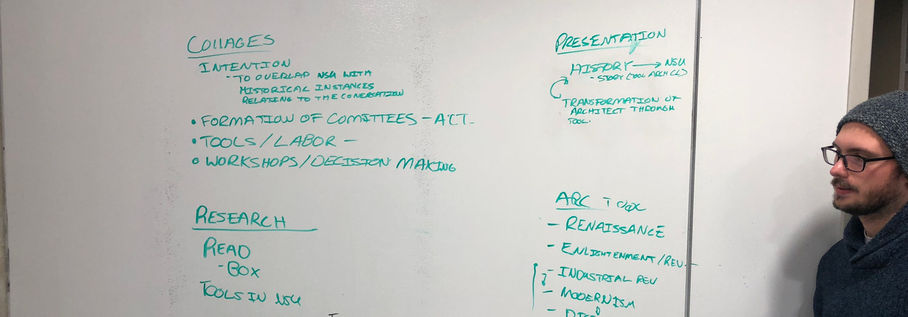 COLLAGES
INTENTION
- TO OVERLAP NSU WITH
HISTORICAL INSTANCES
RELATING TO THE CONVERSATION
• FORMATION OF COMITTEES - ALT.
• TOOLS/LABOR -
• WORKSHOPS/DECISION MAKING
RESEARCH
READ
- BOX
TOOLS IN NSU
PRESENTATION
HISTORY → NSU
- STORY (TOOL ARCH
TRANSFORMATION OF
ARCHITECT THROUGH
TOOL.
ARC
- RENAISSANCE
- ENLIGHTENMENT/REV.
- INDUSTRIAL REV
- MODERNISM